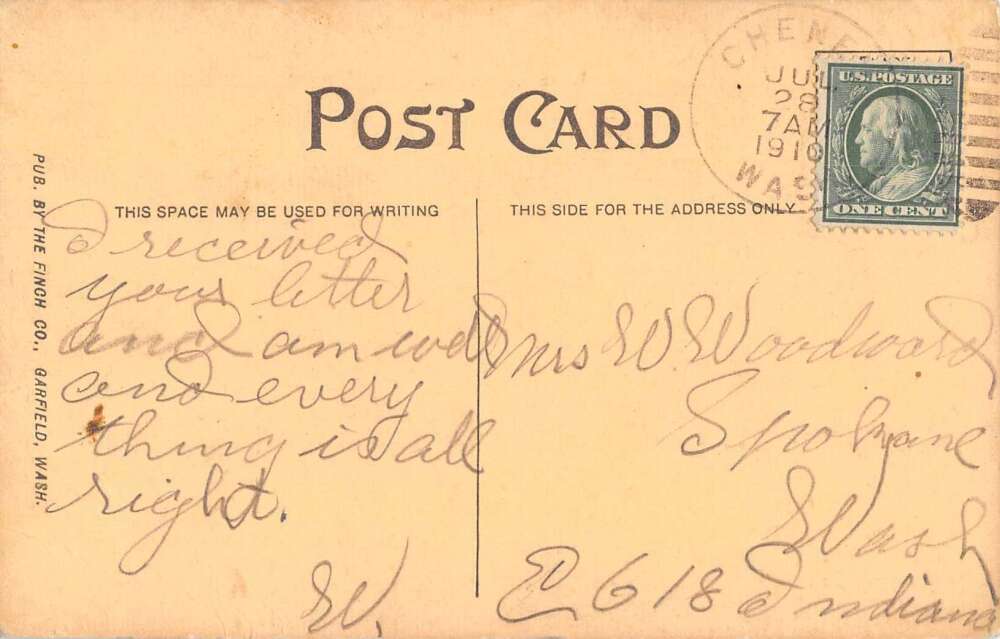 POST CARD
CHENEY
JUL
28
7AM
1910
WASH
U.S. POSTAGE
ONE CENT
THIS SPACE MAY BE USED FOR WRITING
THIS SIDE FOR THE ADDRESS ONLY
PUB. BY THE FINCH CO., GARFIELD, WASH.
I received
your letter
and am well
and every
thing is all
right.
W.
Mrs W. Woodward
Spokane
Wash
E 618 Indiana